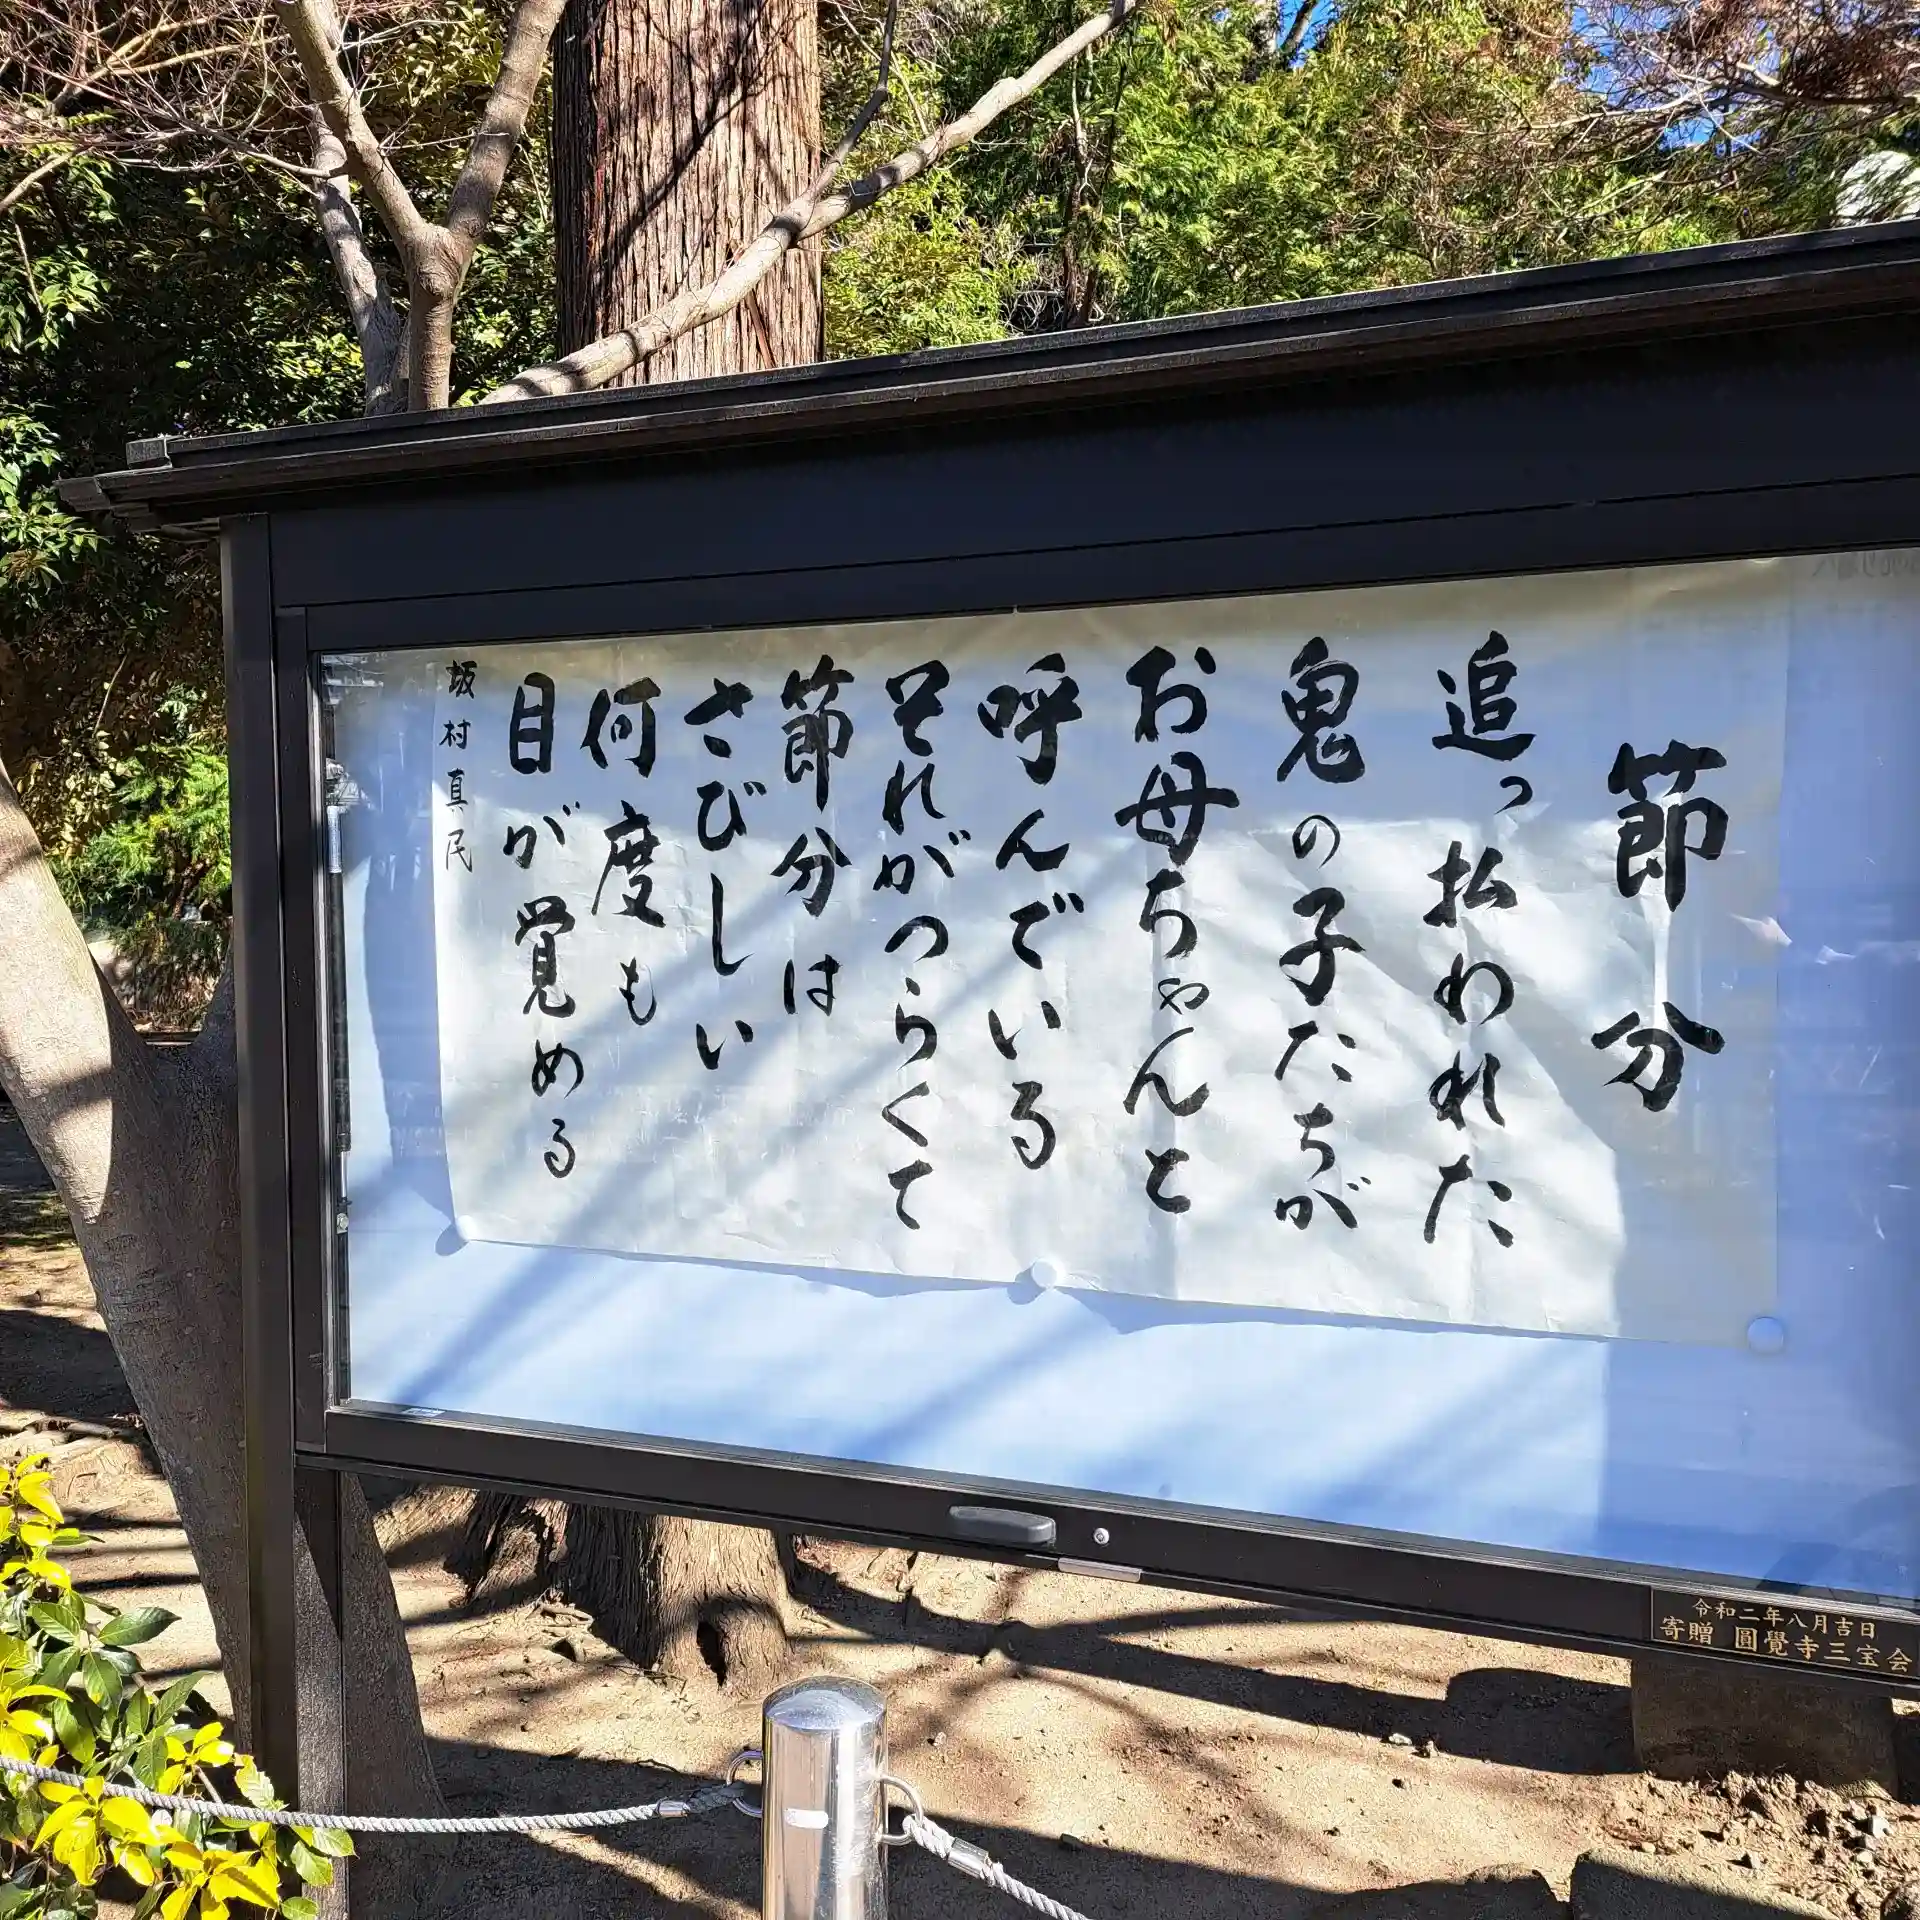 節分
追っ払われた
鬼の子たちが
お母ちゃんと
呼んでいる
それがつらくて
節分は
さびしい
何度も
目が覚める
坂村真民
令和二年八月吉日
寄贈 圓覺寺三宝会